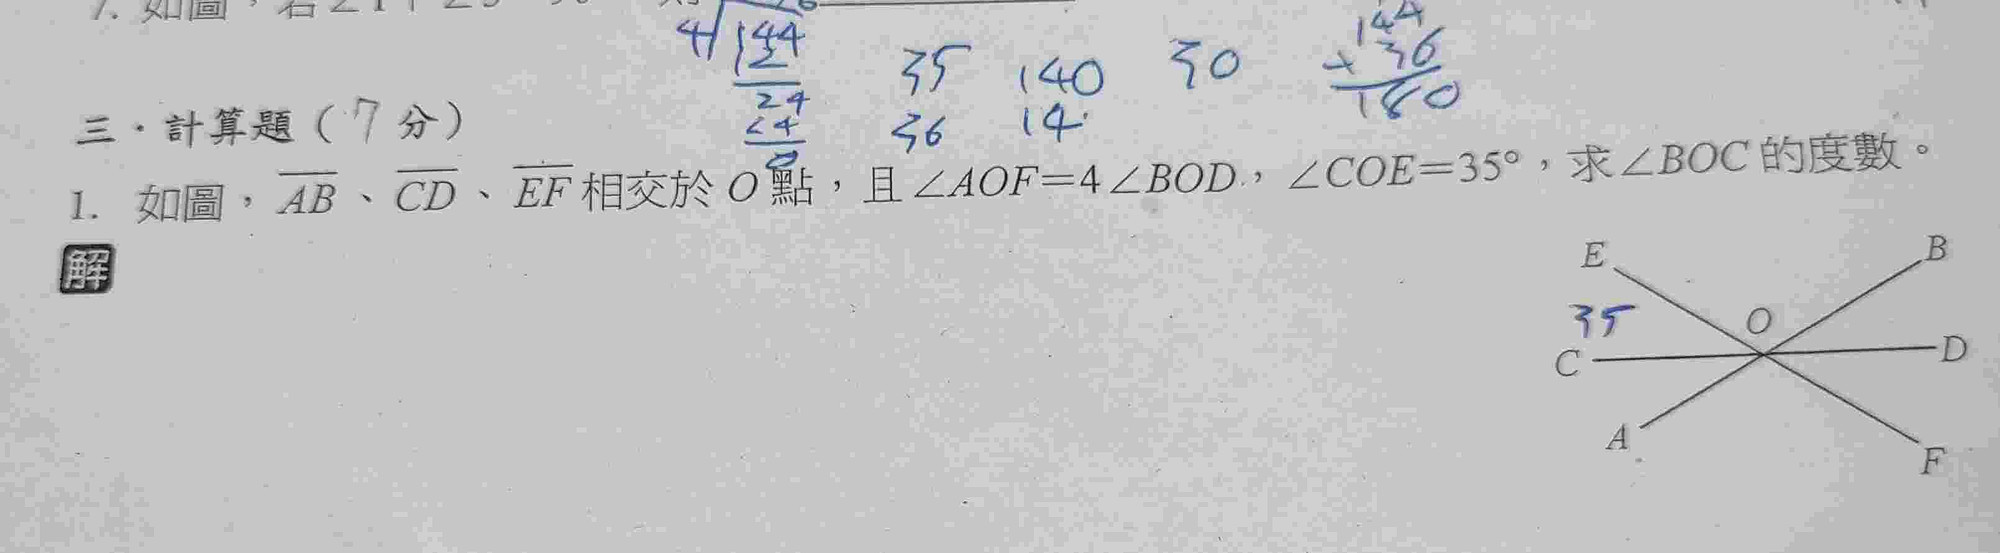 7. 如圖，若∠1+∠3
4 144
12
24
24
0
35 140 30
36 14
144
+ 36
180
三．計算題（7分）
1. 如圖，AB、CD、EF相交於O點，且∠AOF=4∠BOD，∠COE=35°，求∠BOC的度數。
解
E B
35 O
C D
A F